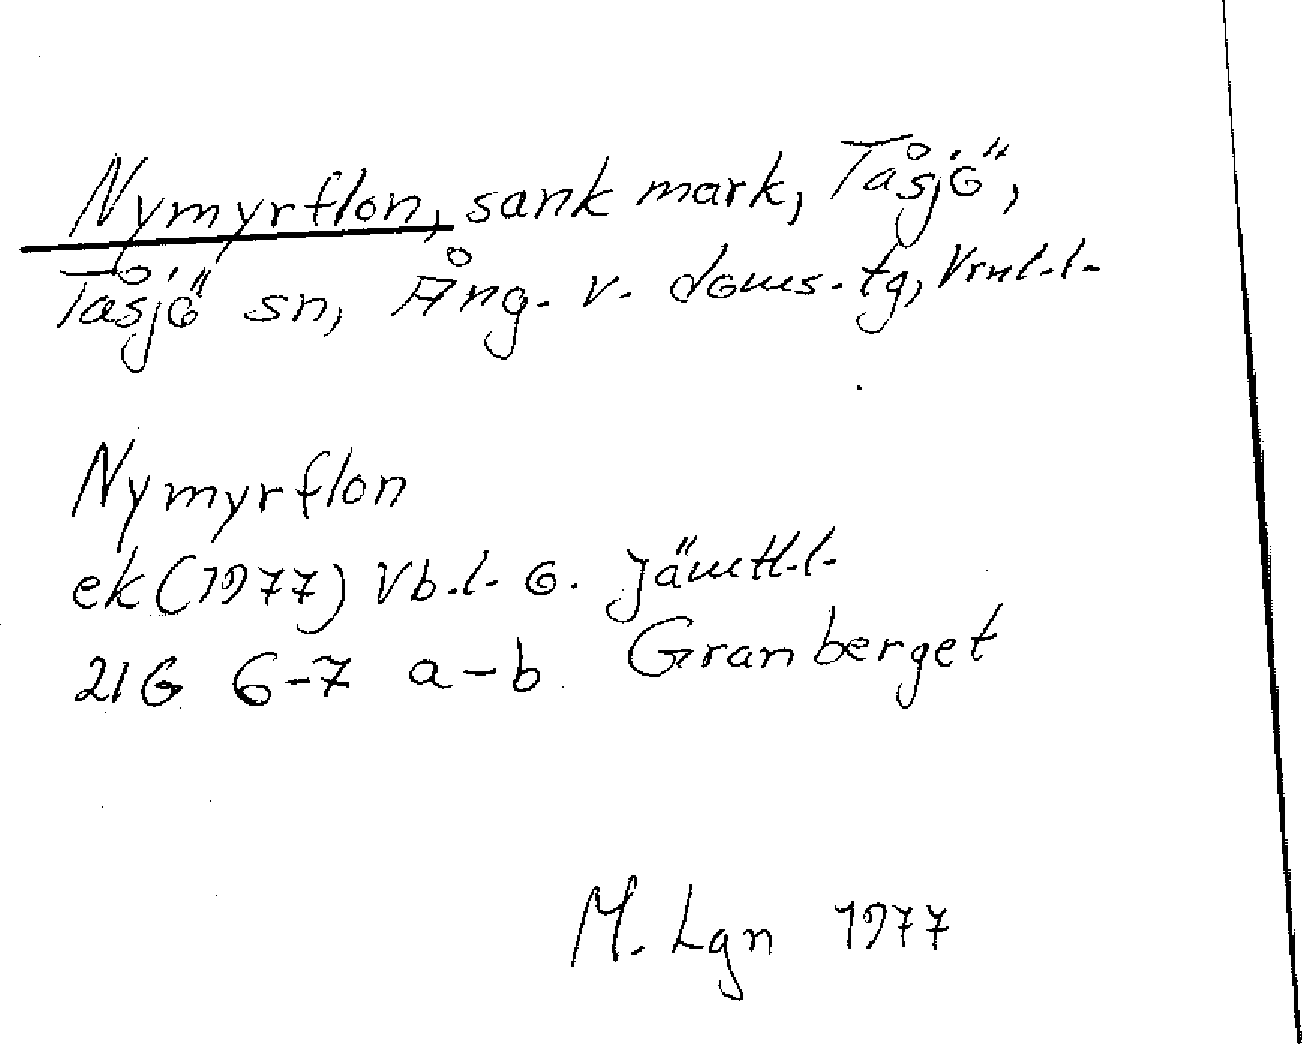 Nymyrflon, sank mark, Tåsjö,
Tåsjö sn, Ång. v. doms. tg, Vrnl.l.
Nymyrflon
ek (1977) Vb.l. o. Jämtl.l.
21G 6-7 a-b Granberget
M. Lgn 1977